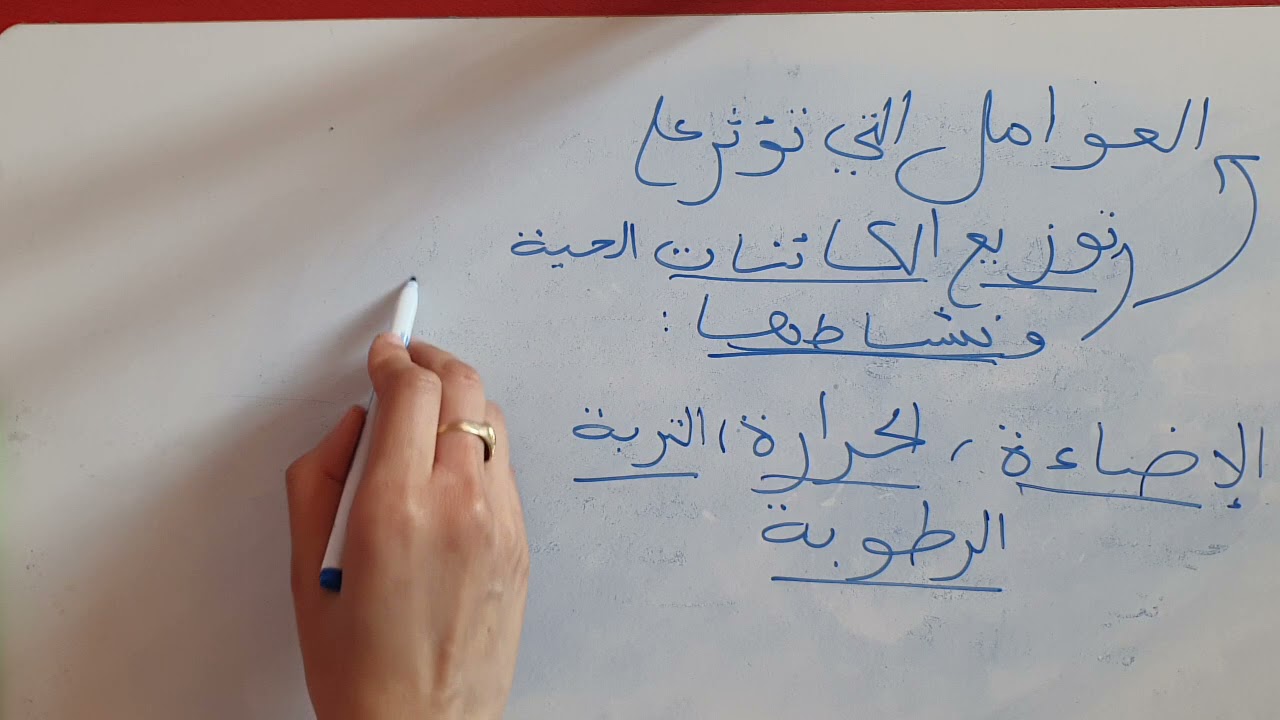 العوامل التي تؤثر على
توزيع الكائنات الحية
ونشاطها :
الإضاءة ، الحرارة ، التربة
الرطوبة